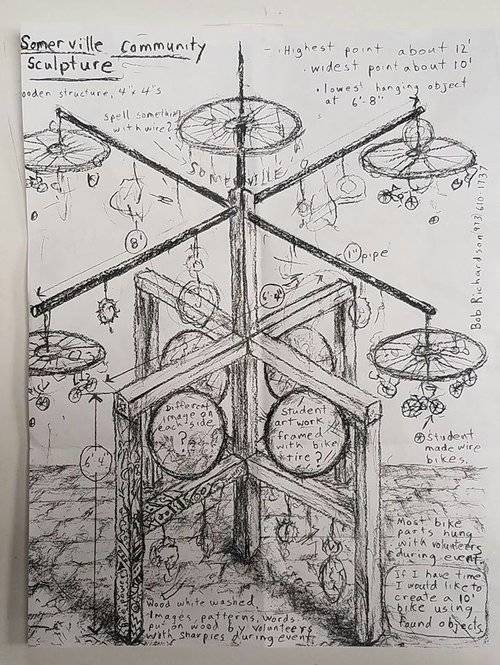 Somerville Community
Sculpture
ooden structure, 4"x 4"s
- Highest point about 12'
· widest point about 10'
· lowest hanging object
at 6'-8"
spell something
with wire?
SOMERVILLE
8'
1" pipe
6'4
Bob Richardson 973 610 1737
Different
image on
each side
?
Student
artwork
framed
with bike
tire?
6'4
Student
made wire
bikes
Most bike
parts hung
with volunteers
during event
If I have time
I would like to
create a 10'
bike using
found objects
Wood white washed
Images, patterns, words
put on wood by volunteers
with sharpies during event